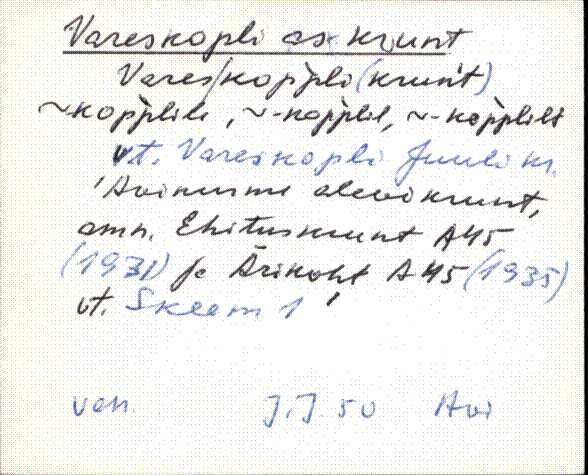 Vareskopli as. krunt
Vares/koppli (krunt)
~kopplile, ~-kopplil, ~-kopplilt
vt. Vareskopli Juuli kr.
'Avinurme alevikrunt,
amn. Ehituskrunt A45
(1931) ja Ärikoht A45 (1935)
vt. Skeem 1'
van. J.J. 50 Avi